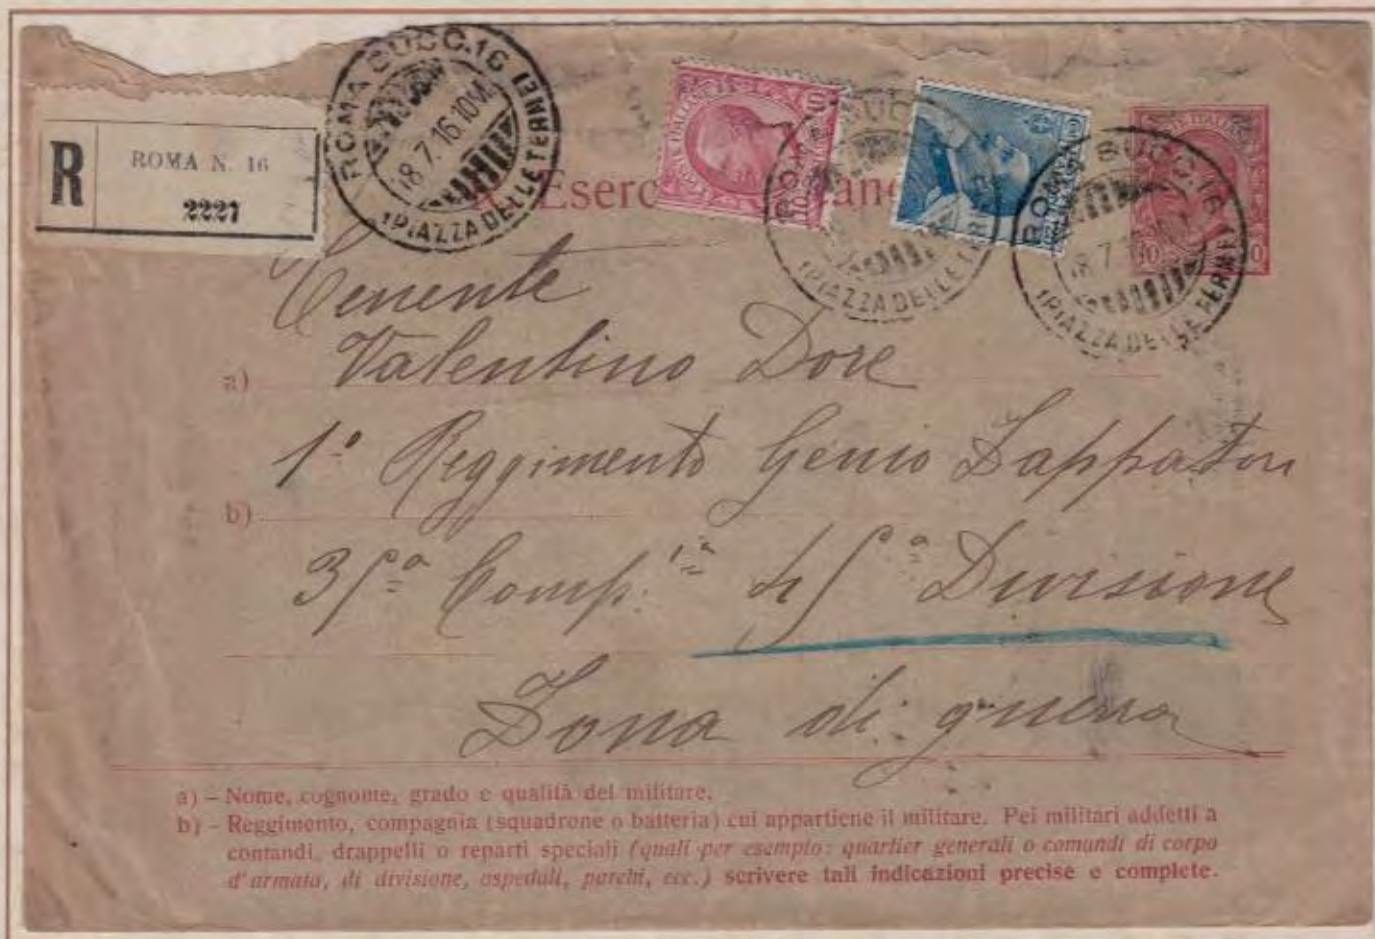 R ROMA N. 16
2227
ROMA SUCC. 16
18.7.16.10M.
(PIAZZA DELLE TERME)
ROMA SUCC
(PIAZZA DELLE TER
ROMA SUCC. 16
18.7.1
(PIAZZA DELLE TERME)
POSTE ITALIANE
10
Eserc ano
Tenente
a) Valentino Dore
1° Reggimento Genio Zappatori
b)
35ª Comp. 45ª Divisione
Zona di guerra
a) - Nome, cognome, grado e qualità del militare.
b) - Reggimento, compagnia (squadrone o batteria) cui appartiene il militare. Pei militari addetti a
comandi, drappelli o reparti speciali (quali per esempio: quartier generali o comandi di corpo
d'armata, di divisione, ospedali, parchi, ecc.) scrivere tali indicazioni precise e complete.